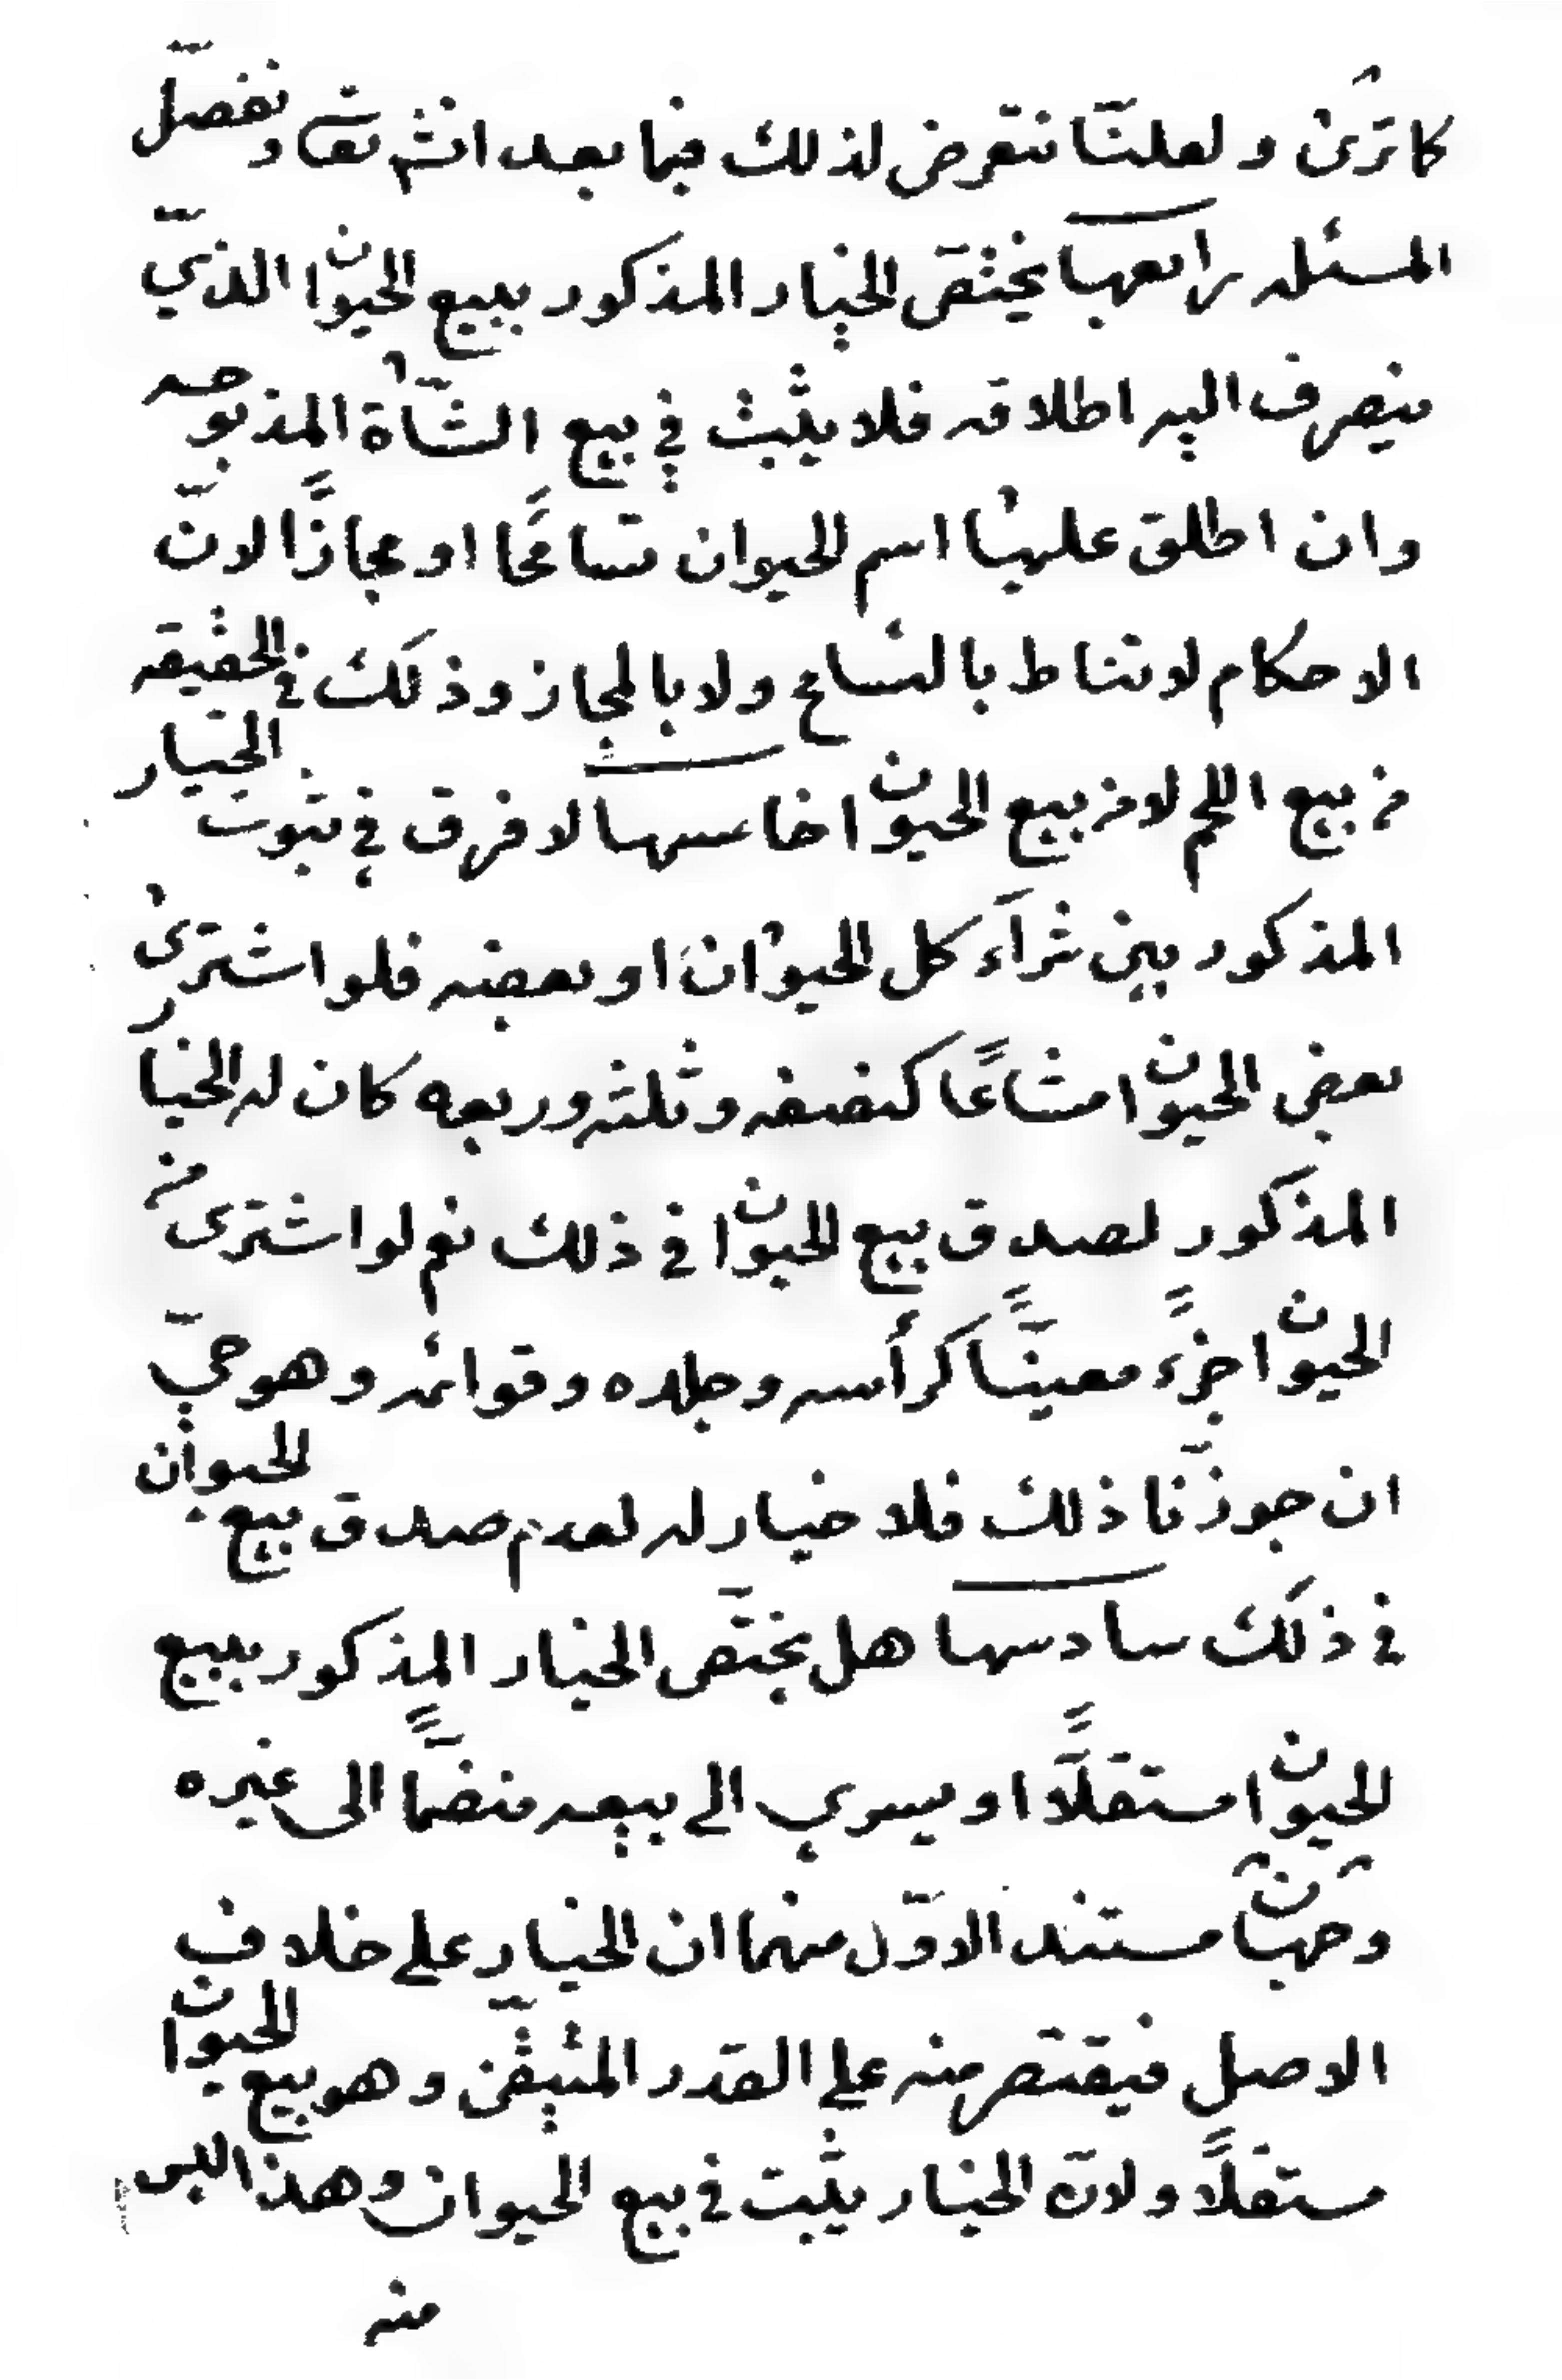 كما ترى ولعلنا نتعرض لذلك فيما بعد انشاء تعالى ونفصّل
المسئله رابعها يختصّ الخيار المذكور ببيع الحيوان الذيّ
ينصرف اليه اطلاقه فلا يثبت في بيع الشّاة المذبوحه
وان اطلق عليها اسم الحيوان تسامحًا او مجازًا لانّ
الاحكام لا تناط بالتسامح ولا بالمجاز وذلك في الحقيقه
من بيع اللحم لا من بيع الحيوان خامسها لا فرق في ثبوت الخيار
المذكور بين شراء كل الحيوان او بعضه فلو اشترى
بعض الحيوان مشاعًا كنصفه وثلثه وربعه كان له الخيار
المذكور لصدق بيع الحيوان في ذلك نعم لو اشترى من
الحيوان جزءً معينًا كرأسه وجلده وقوائمه وهو حيّ
ان جوزنا ذلك فلا خيار له لعدم صدق بيع الحيوان
في ذلك سادسها هل يختّص الخيار المذكور ببيع
الحيوان مستقلًّا او يسري الى بيعه منضمًّا الى غيره
وجهان مستند الاوّل منهما ان الخيار على خلاف
الاصل فيقتصر منه على القدر المتيقّن وهو بيع الحيوان
مستقلًا ولانّ الخيار يثبت في بيع الحيوان وهذا ليس
منه